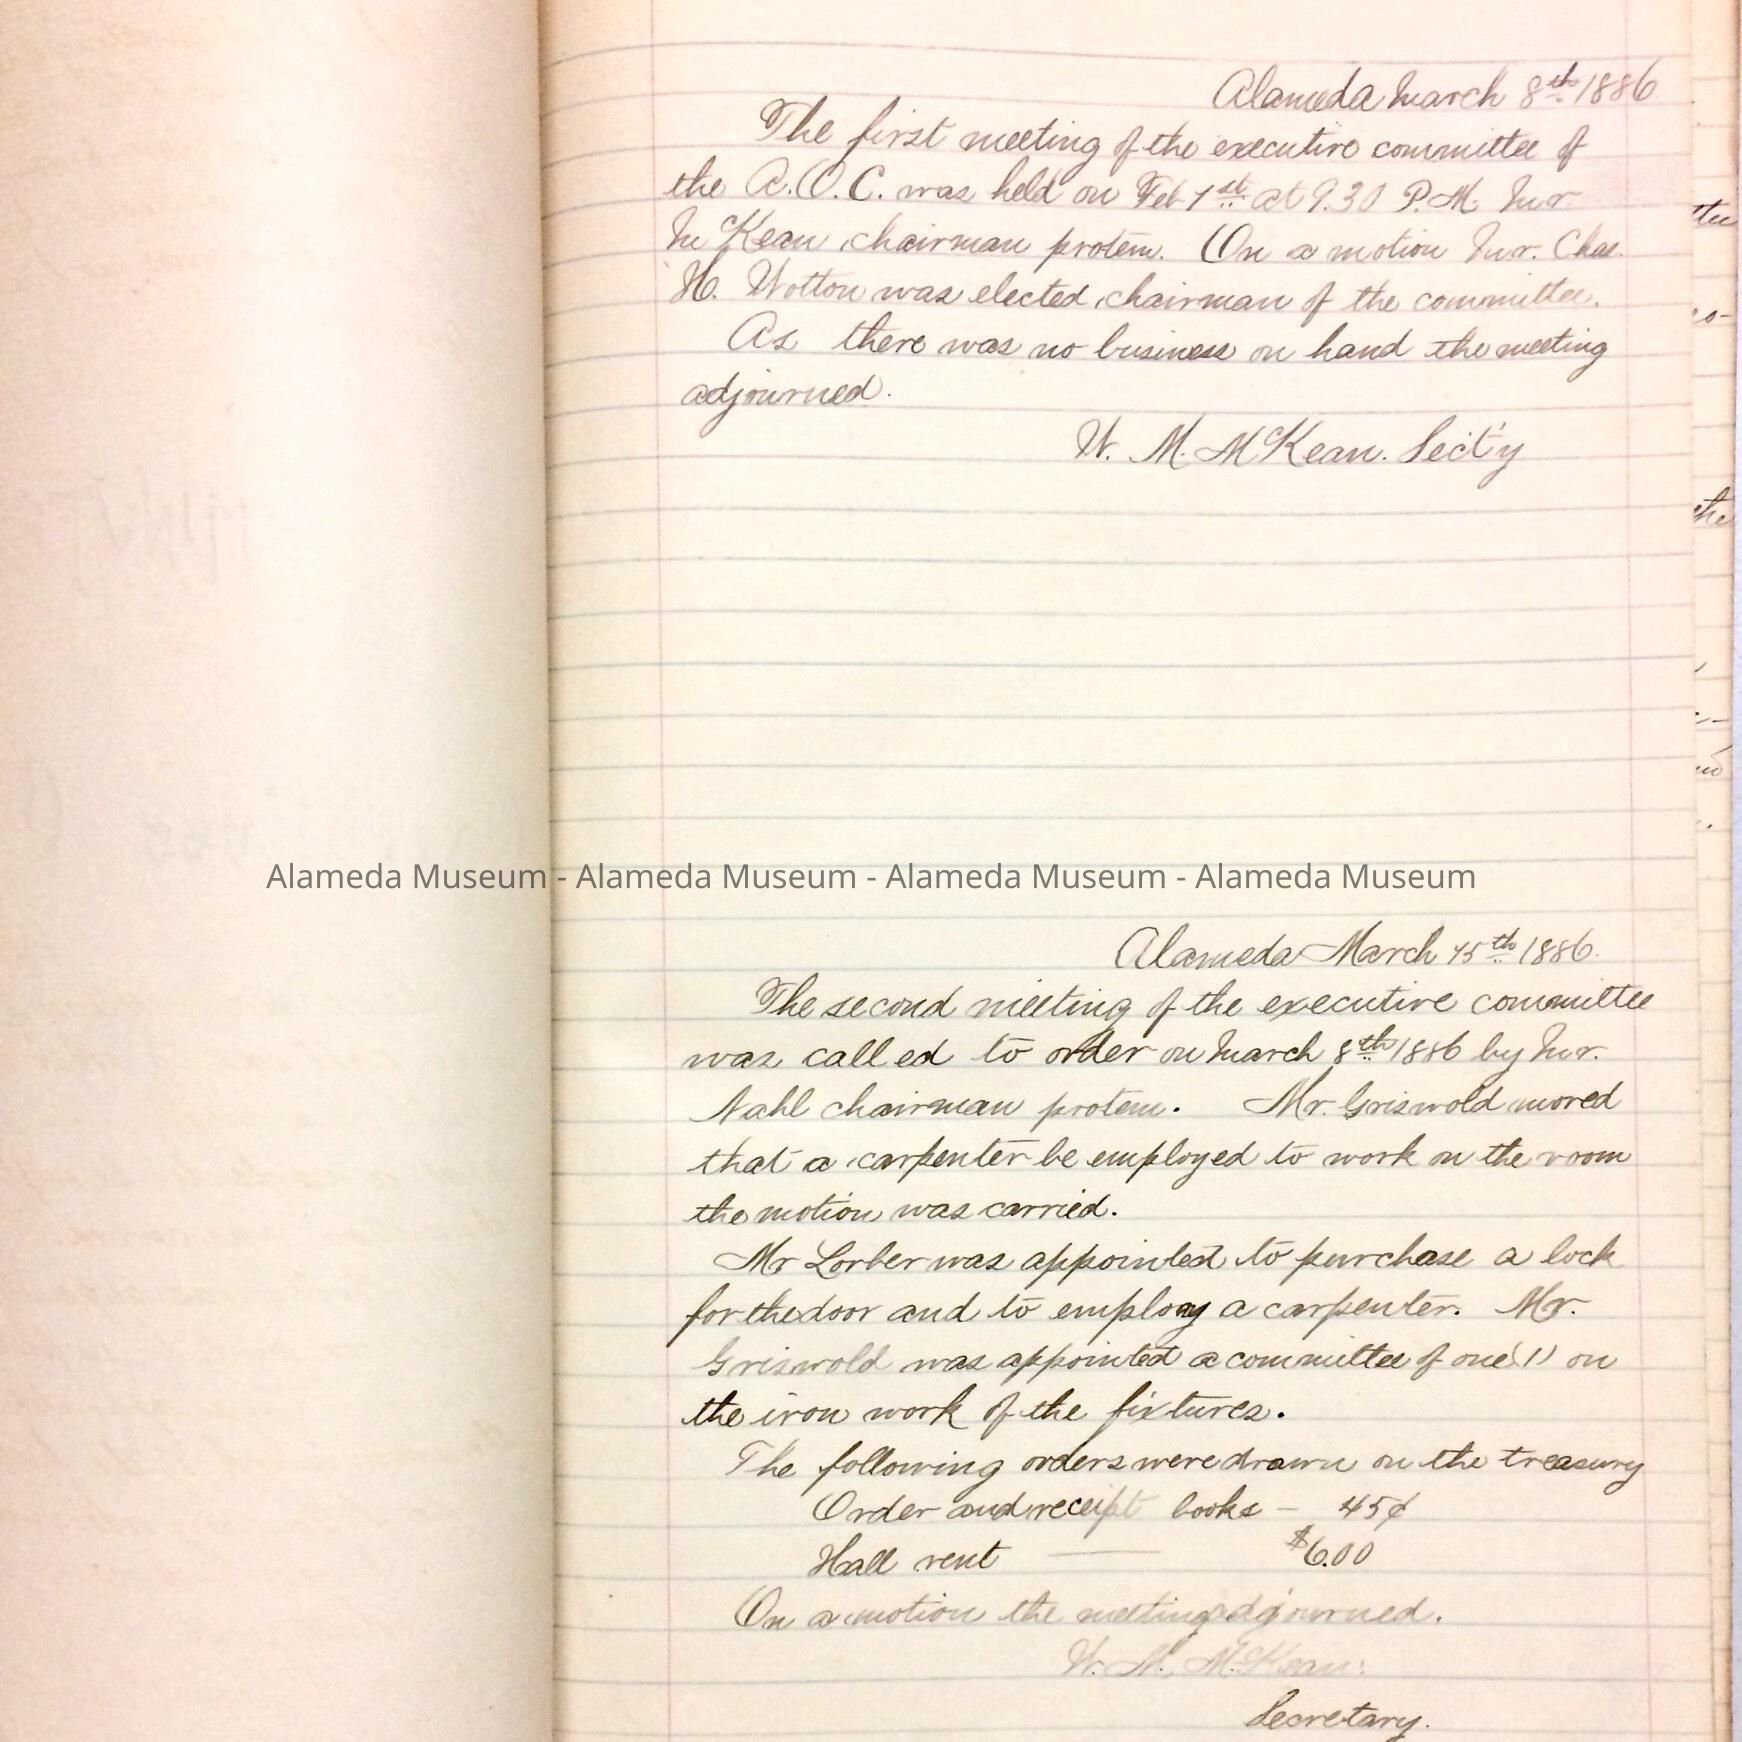 Alameda March 8th 1886
The first meeting of the executive committee of
the A.O.C. was held on Feb 1st at 9.30 P.M. Mr.
McKean chairman protem. On a motion Mr. Chas.
H. Wotton was elected chairman of the committee.
As there was no business on hand the meeting
adjourned.
W. M. McKean. Sect'y
Alameda Museum - Alameda Museum - Alameda Museum - Alameda Museum
Alameda March 15th 1886.
The second meeting of the executive committee
was called to order on March 8th 1886 by Mr.
Nahl chairman protem. Mr. Griswold moved
that a carpenter be employed to work on the room
the motion was carried.
Mr Lorber was appointed to purchase a lock
for the door and to employ a carpenter. Mr.
Griswold was appointed a committee of one (1) on
the iron work of the fixtures.
The following orders were drawn on the treasury
Order and receipt books — 45¢
Hall rent —— $6.00
On a motion the meeting adjourned.
W. M. McKean.
Secretary.